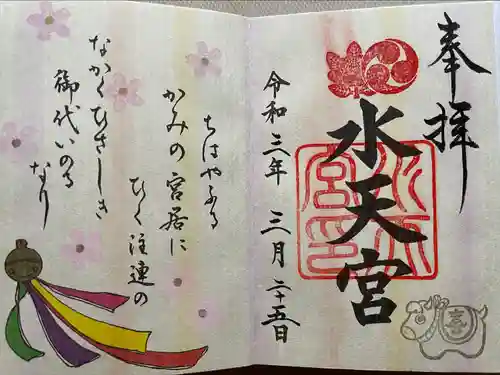 奉拝
水天宮
水天宮印
令和三年 三月二十五日
ちはやふる
かみの宮居に
ひく注連の
なかくひさしき
御代いのる
なり